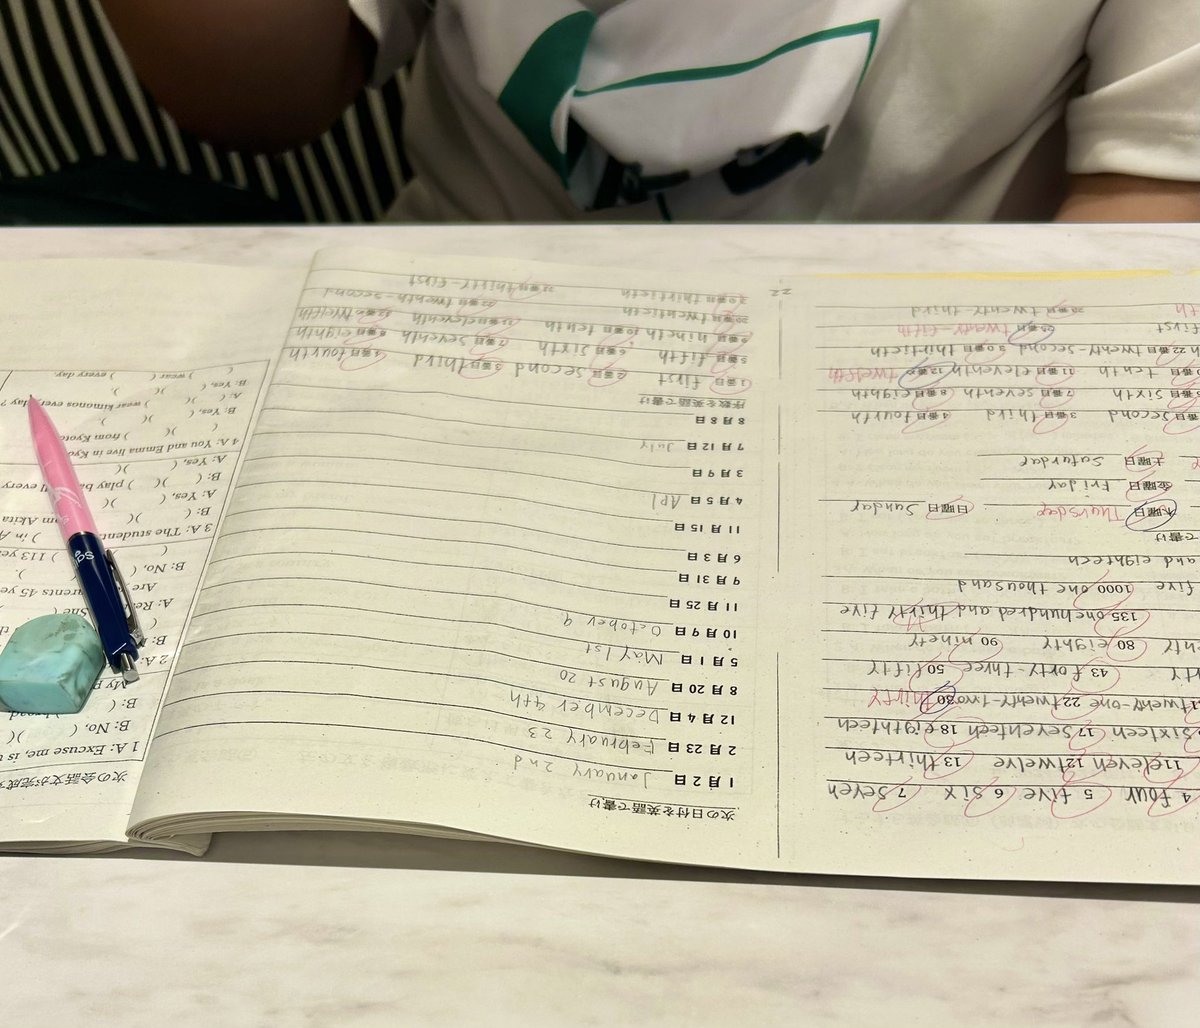 4 four 5 five 6 six 7 seven
11 eleven 12 twelve 13 thirteen
sixteen 17 seventeen 18 eighteen
twenty-one 22 twenty-two 30 thirty
43 forty-three 50 fifty
80 eighty 90 ninety
135 one hundred and thirty five
five 1000 one thousand
and eighteen
で書け
木曜日 Thursday 日曜日 Sunday
金曜日 Friday
土曜日 Saturday
second 3番目 third 4番目 fourth
sixth 7番目 seventh 8番目 eighth
tenth 11番目 eleventh 12番目 twelfth
22番目 twenty-second 30番目 thirtieth
first 25番目 twenty-fifth
twenty third
22
次の日付を英語で書け
1月2日 January 2nd
2月23日 February 23
12月4日 December 4th
8月20日 August 20
5月1日 May 1st
10月9日 October 9
11月25日
9月31日
6月3日
11月15日
4月5日 Apl
3月9日
7月12日 July
8月8日
序数を英語で書け
1番目 first 2番目 second 3番目 third 4番目 fourth
5番目 fifth 6番目 sixth 7番目 seventh 8番目 eighth
9番目 nineth 10番目 tenth 11番目 eleventh 12番目 twelfth
20番目 twentieth 22番目 twenth-second
30番目 thirtieth 31番目 thirtty-first
次の会話文が完成
1 A: Excuse me, is
B: No, ( )(
B: (
My
2 A:
She
A: Re
Are parents 45 ye
B: No, ( ) 113 ye
3 A: The student ) in A
B: ( om Akita
A: Yes, ( )(
B: ( ) play ba all every
A: Yes, ( )(
4 A: You and Emma live in Kyo
( )( ) from Kyoto
B: Yes, ( )(
A: ( )( ) wear kimonos every day?
B: Yes, ( )(
( ) wear ( ) every day.